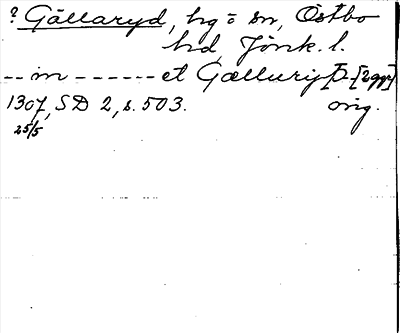 ? Gällaryd, hg o sn, Östbo
hd, Jönk. l.
-- in ------ et Gælluryþ [2 ggr]
1307, SD 2, s. 503. orig.
25/5